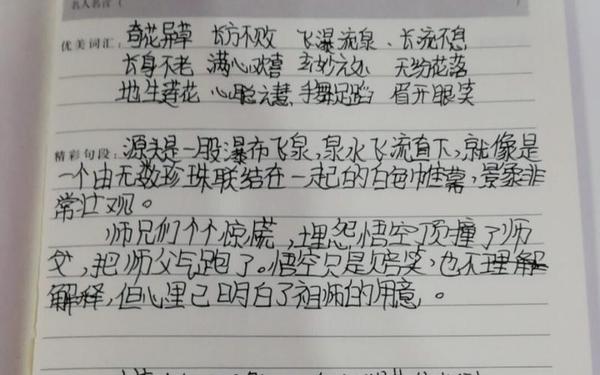 名人名言（
优美词汇：奇花异草 长方不败 飞瀑流泉、长流不息
长身不老 满心欢喜 玄妙之处 天纷花落
地生莲花 心聪之慧 手舞足蹈 眉开眼笑
精彩句段：源头是一股瀑布飞泉，泉水飞流直下，就像是
一个由无数珍珠联结在一起的白色帷幕，景象非
常壮观。
师兄们个个惊慌，埋怨悟空顶撞了师
父，把师父气跑了。悟空只是陪笑，也不理解
解释，但心里已明白了祖师的用意。